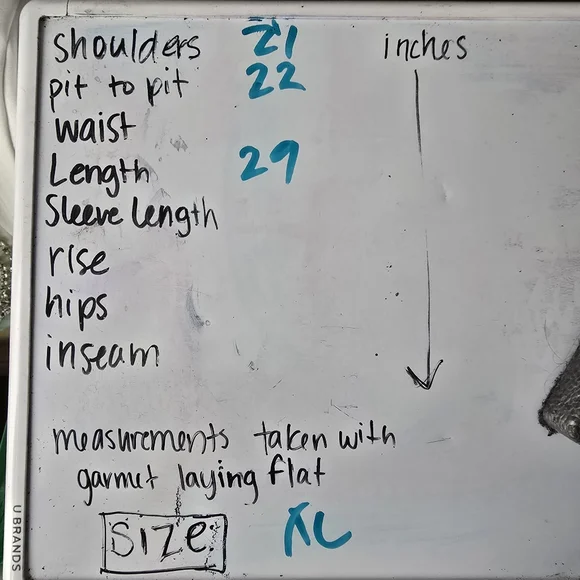 shoulders 21 inches
pit to pit 22
waist
Length 29
Sleeve length
rise
hips
inseam
measurements taken with
garmet laying flat
Size: XL
U BRANDS